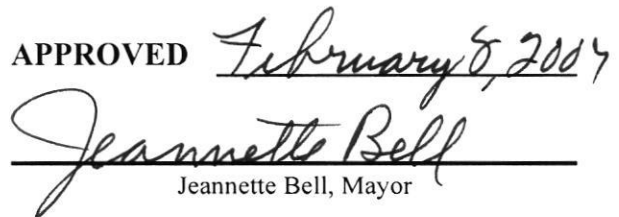 APPROVED February 8, 2007
Jeannette Bell
Jeannette Bell, Mayor